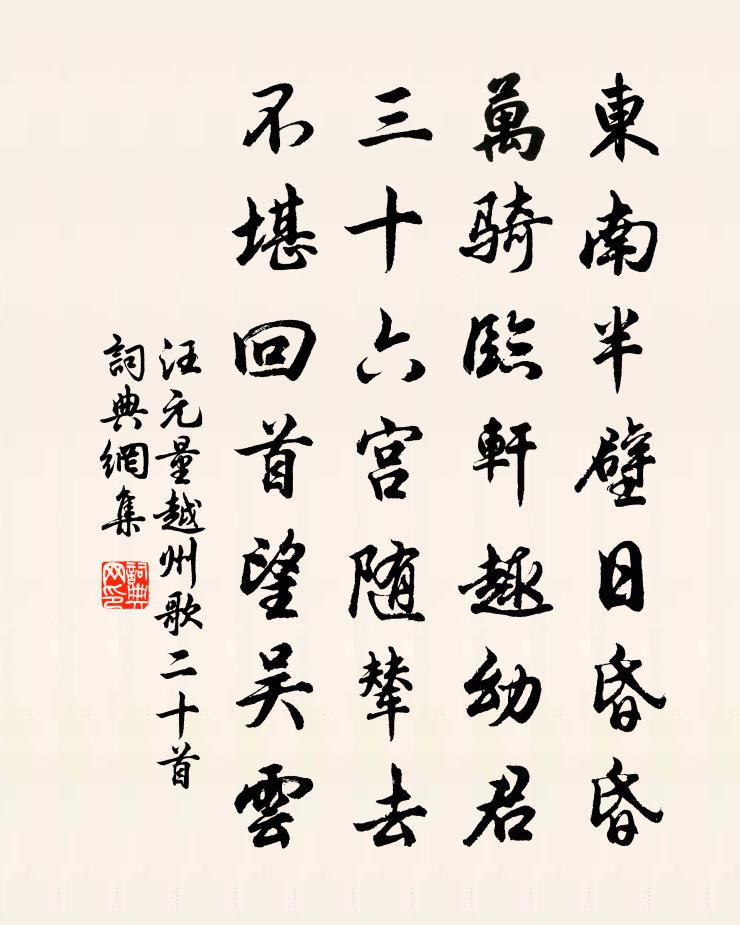 東南半壁日昏昏
萬騎臨軒趣幼君
三十六宮随輦去
不堪回首望吴雲
汪元量越州歌二十首
詞典網集
詞典网印